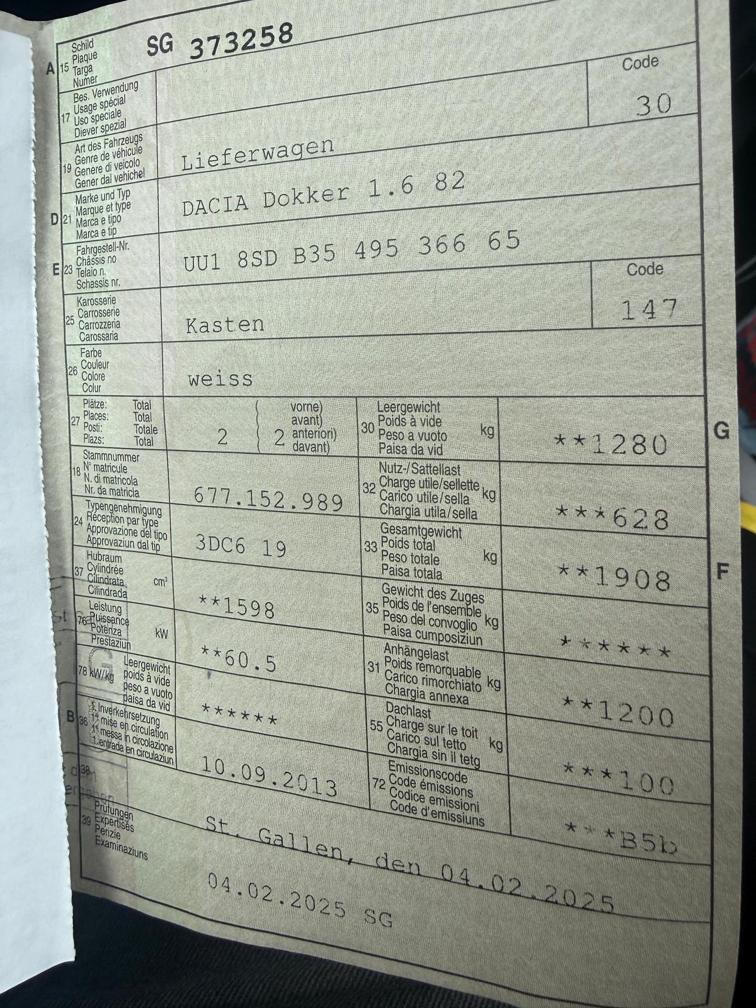 A 15 Schild
Plaque
Targa
Numer
SG 373258
17 Bes. Verwendung
Usage spécial
Uso speciale
Diever spezial
Code
30
19 Art des Fahrzeugs
Genre de véhicule
Genere di veicolo
Gener dal vehichel
Lieferwagen
D 21 Marke und Typ
Marque et type
Marca e tipo
Marca e tip
DACIA Dokker 1.6 82
E 23 Fahrgestell-Nr.
Châssis no
Telaio n.
Schassis nr.
UU1 8SD B35 495 366 65
25 Karosserie
Carrosserie
Carrozzeria
Carossaria
Kasten
Code
147
26 Farbe
Couleur
Colore
Colur
weiss
27 Plätze: Total
Places: Total
Posti: Totale
Plazs: Total
2 ( 2 vorne)
avant)
anteriori)
davant)
30 Leergewicht
Poids à vide
Peso a vuoto
Paisa da vid
kg
**1280
G
18 Stammnummer
N° matricule
N. di matricola
Nr. da matricla
677.152.989
32 Nutz-/Sattellast
Charge utile/sellette
Carico utile/sella
Chargia utila/sella
kg
***628
24 Typengenehmigung
Réception par type
Approvazione del tipo
Approvaziun dal tip
3DC6 19
33 Gesamtgewicht
Poids total
Peso totale
Paisa totala
kg
**1908
F
37 Hubraum
Cylindrée
Cilindrata
Cilindrada
cm³
**1598
35 Gewicht des Zuges
Poids de l'ensemble
Peso del convoglio
Paisa cumposiziun
kg
******
76 Leistung
Puissance
Potenza
Prestaziun
kW
**60.5
31 Anhängelast
Poids remorquable
Carico rimorchiato
Chargia annexa
kg
**1200
78 kW/kg Leergewicht
poids à vide
peso a vuoto
paisa da vid
******
55 Dachlast
Charge sur le toit
Carico sul tetto
Chargia sin il tetg
kg
***100
B 36 1. Inverkehrsetzung
1re mise en circulation
1a messa in circolazione
1. entrada en circulaziun
10.09.2013
72 Emissionscode
Code émissions
Codice emissioni
Code d'emissiuns
***B5b
38
St. Gallen, den 04.02.2025
39 Prüfungen
Expertises
Perizie
Examinaziuns
04.02.2025 SG